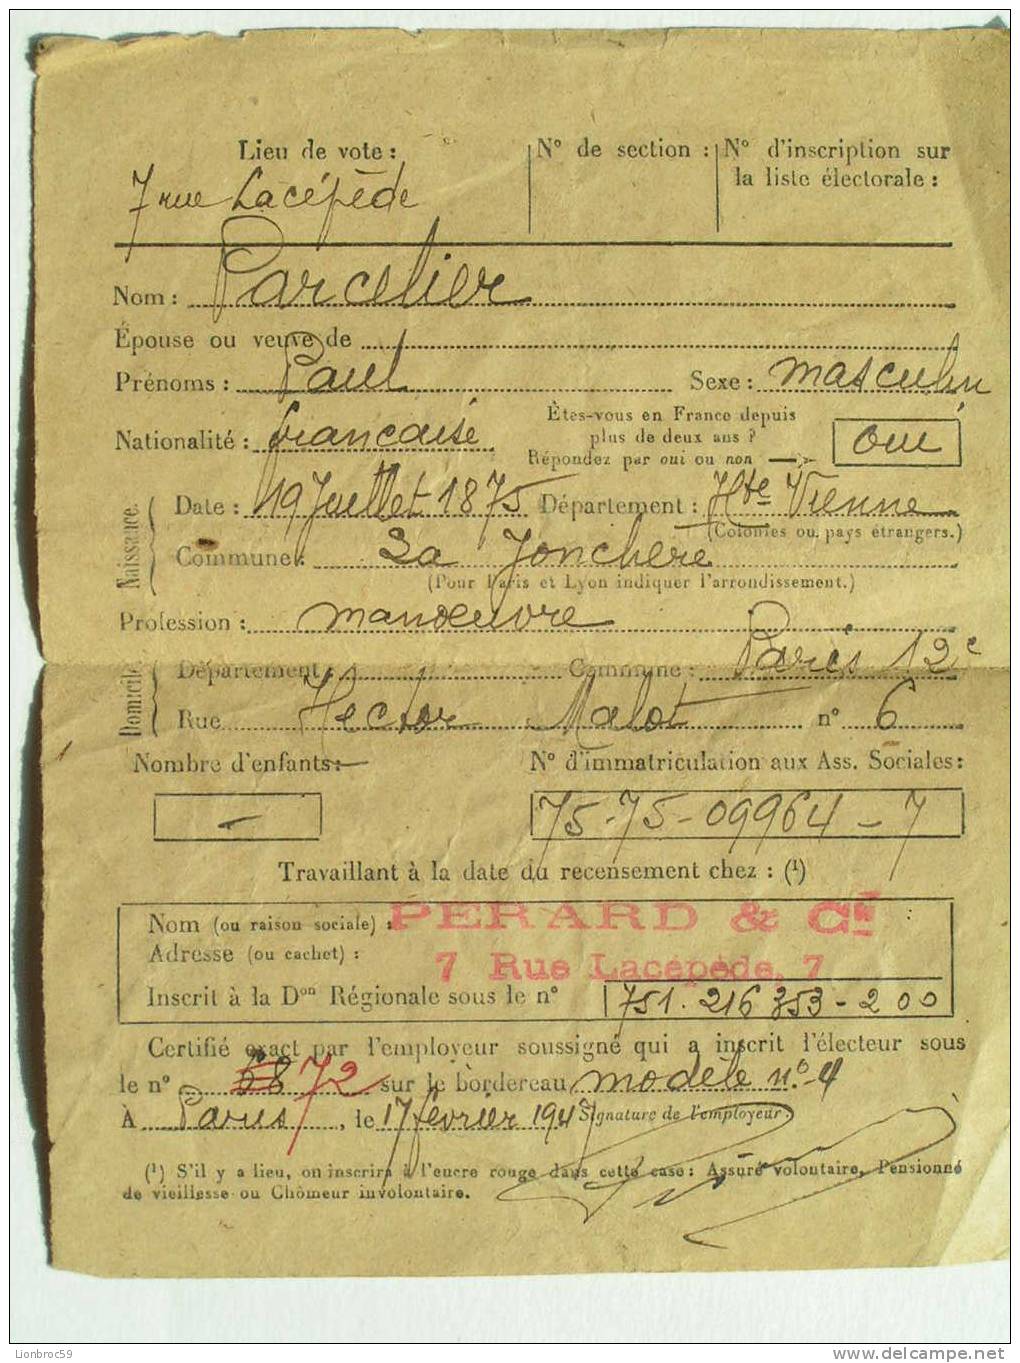 Lieu de vote : N° de section : N° d'inscription sur
la liste électorale :
7 rue Lacépède
Nom : Parcelier
Épouse ou veuve de
Prénoms : Paul Sexe : masculin
Êtes-vous en France depuis
plus de deux ans ?
Répondez par oui ou non oui
Nationalité : française
Naissance. Date : 19 Juillet 1875 Département : Hte Vienne
(Colonies ou pays étrangers.)
Commune : La Jonchère
(Pour Paris et Lyon indiquer l'arrondissement.)
Profession : manœuvre
Domicile Département : Commune : Paris 12e
Rue Hector Malot n° 6
Nombre d'enfants : N° d'immatriculation aux Ass. Sociales :
- 75-75-09964-7
Travaillant à la date du recensement chez : (1)
Nom (ou raison sociale) : PERARD & Cie
Adresse (ou cachet) : 7 Rue Lacépède, 7
Inscrit à la Don Régionale sous le n° 751.216 353-200
Certifié exact par l'employeur soussigné qui a inscrit l'électeur sous
le n° 72 sur le bordereau modèle n° 4
À Paris, le 17 février 1947 Signature de l'employeur :
(1) S'il y a lieu, on inscrira à l'encre rouge dans cette case : Assuré volontaire, Pensionné
de vieillesse ou Chômeur involontaire.
Lionbroc59 www.delcampe.net